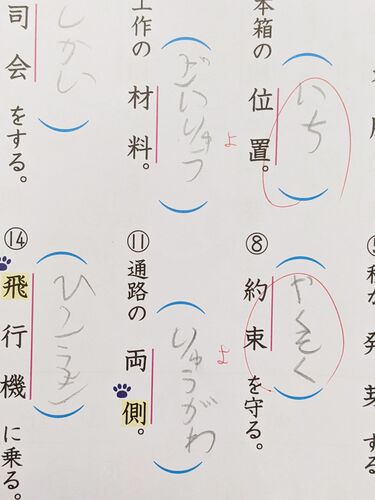 本箱の位置。
いち
工作の材料。
ざいりゅう
よ
司会をする。
しかい
が発芽する
⑧約束を守る。
やくそく
⑪通路の両側。
りゅうがわ
よ
⑭飛行機に乗る。
ひこうき